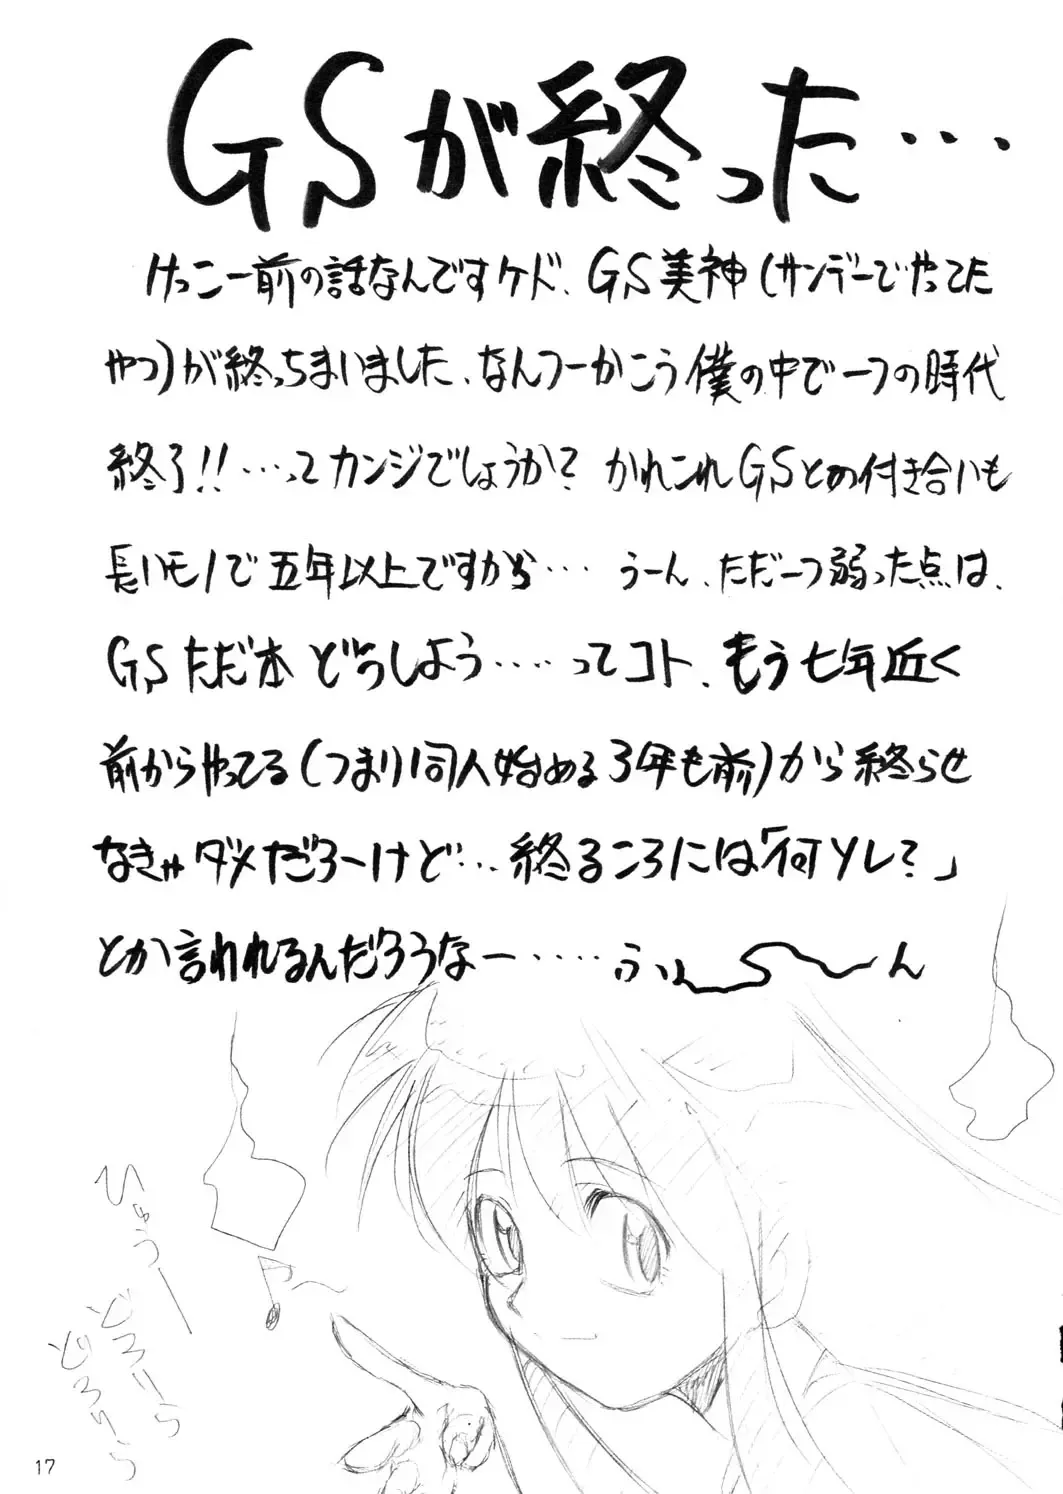 GSが終った…
けっこー前の話なんですケド、GS美神(サンデーでやってた
やつ)が終っちまいました、なんつーかこう僕の中で一つの時代
終了!!…ってカンジでしょうか? かれこれGSとの付き合いも
長いモノで五年以上ですから… うーん、ただ一つ弱った点は、
GSただ本 どうしよう……ってコト、もう七年近く
前からやってる(つまり同人始める3年も前)から終らせ
なきゃダメだろーけど…終るころには「何ソレ?」
とか言われるんだろうなー……ふぃ〜〜ん
ひゅうー
どろりら
どろりら
17